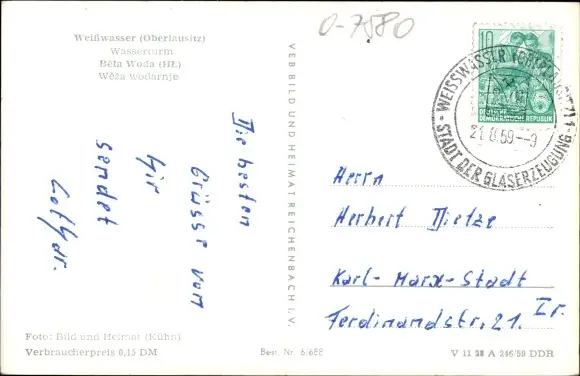 0-7580
Weißwasser (Oberlausitz)
Wasserturm
Běła Woda (HL)
Wěža wodarnje
10
DEUTSCHE
DEMOKRATISCHE REPUBLIK
WEISSWASSER (OBERLAUSITZ) 1
STADT DER GLASERZEUGUNG
21.8.59.-9
Die besten
Grüsse von
hir
sendet
Lothar.
VEB BILD UND HEIMAT REICHENBACH I. V.
Herrn
Herbert Dietze
Karl-Marx-Stadt
Ferdinandstr. 21. Ir.
Foto: Bild und Heimat (Kühn)
Verbraucherpreis 0,15 DM
Best. Nr. 6/688
V 11 28 A 246/59 DDR